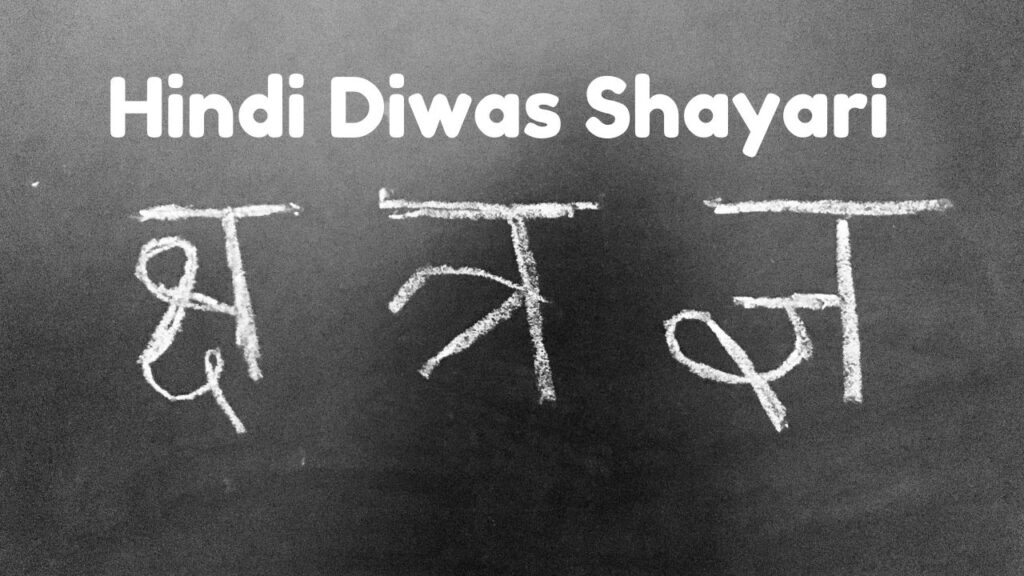 Hindi Diwas Shayari
क्ष त्र ज्ञ